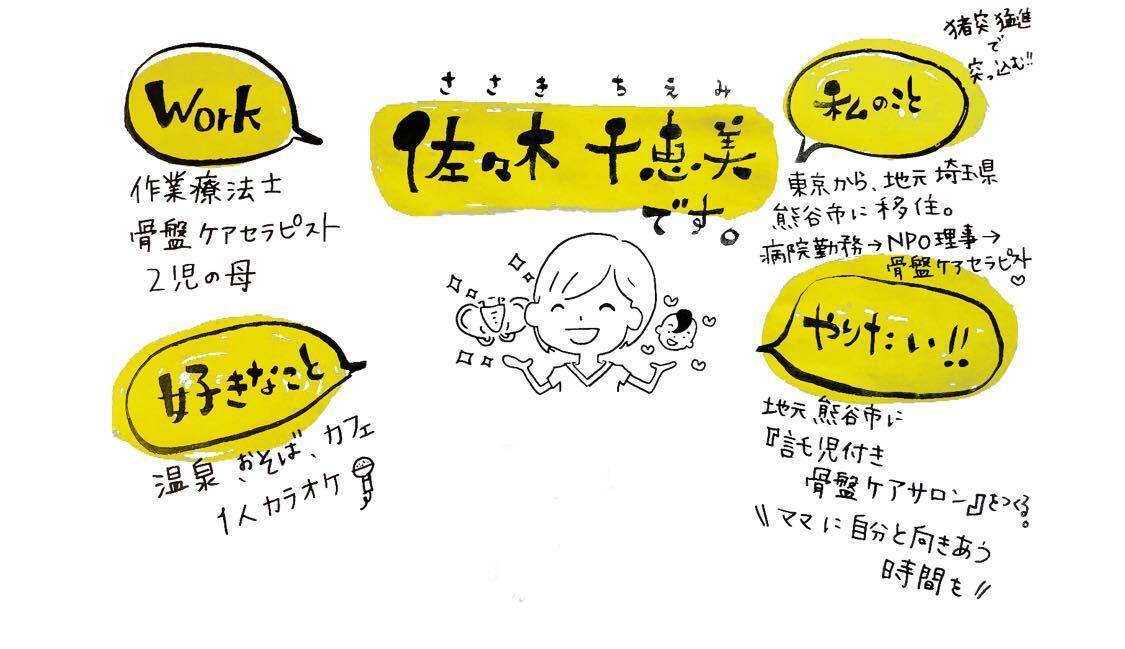 ささき ちえみ
佐々木 千恵美
です。
Work
作業療法士
骨盤ケアセラピスト
2児の母
好きなこと
温泉、おそば、カフェ
1人カラオケ
私のこと
猪突猛進
で
突っ込む!!
東京から、地元埼玉県
熊谷市に移住。
病院勤務→NPO理事→
骨盤ケアセラピスト♡
やりたい!!
地元熊谷市に
『託児付き
骨盤ケアサロン』をつくる。
\\ママに自分と向きあう
時間を//